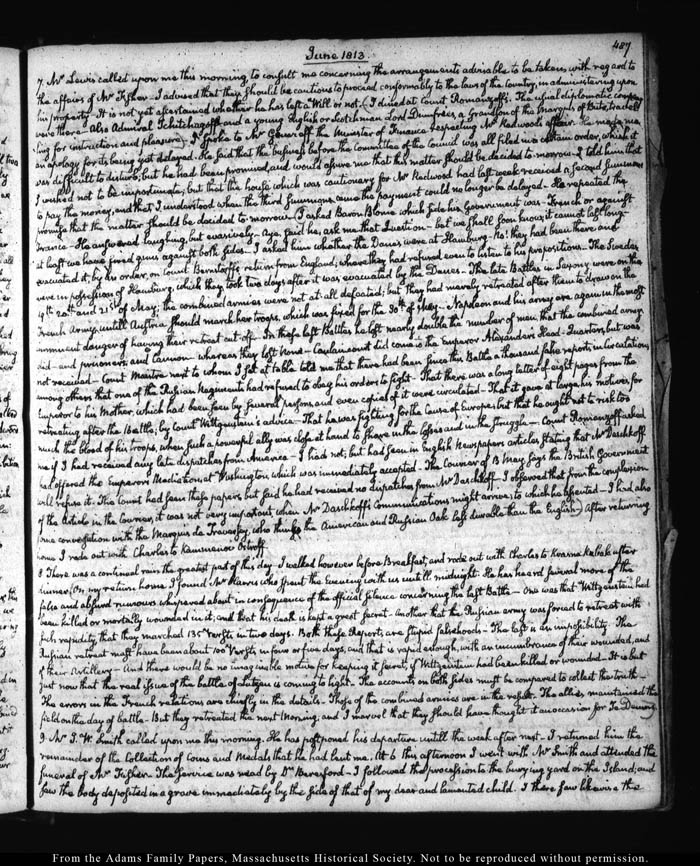 487
June 1813.
7. Mr Lewis called upon me this morning, to consult me concerning the arrangements adviseable to be taken, with regard to
the affairs of Mr Fisher. I advised that they should be cautious to proceed conformably to the laws of the Country, in administering upon
his property. It is not yet ascertained whether he has left a Will or not. I dined at Count Romanzoff's. The usual diplomatic company
were there. Also Admiral Tchitchagoff and a young English or Scotchman Lord Dumfries, a Grandson of the Marquis of Bute, travel-
ling for instruction and pleasure. I spoke to Mr Gourieff the Minister of Finance respecting Mr Redwood's affair. He made me
an apology for its being yet delayed. He said that the business before the Committee of the Council was all filed in a certain order, which it
was difficult to disturb, but he had been promised, and would assure me that this matter should be decided to-morrow. I told him that
I wished not to be importunate, but that the house which was cautionary for Mr Redwood had last week received a second Summons
to pay the money, and that I understood when the third Summons came the payment could no longer be delayed. He repeated the
promise that the matter should be decided to-morrow. I asked Baron Blome which side his Government was - French or against
France - He answered laughing, but evasively - Aye, said he, ask me that Question - but we shall soon know; it cannot last long -
at last we have fired guns against both sides. I asked him whether the Danes were at Hamburg. No! they had been there and
evacuated it, by his order, on Count Bernstorff's return from England, where they had refused even to listen to his propositions. The Swedes
were in possession of Hamburg, which they took two days after it was evacuated by the Danes. The late Battles in Saxony were on the
19th 20th and 21st of May; the combined armies were not at all defeated; but they had merely retreated after them to draw on the
French Army, untill Austria should march her troops, which was fixed for the 30th of May. Napoleon and his army are again in the most
imminent danger of having their retreat cut off. In these last Battles he lost nearly double the number of men that the combined army
did - and prisoners, and Cannon - whereas they lost none - Caulaincourt did come to the Emperor Alexander's Head-Quarters, but was
not received - Count Maistre next to whom I sat at table told me that there had been since this Battle a thousand false reports in circulation;
among others that one of the Russian Regiments had refused to obey his orders to fight - That there was a long letter of eight pages from the
Emperor to his Mother, which had been seen by several persons, and even copies of it were circulated - That it gave at large, his motives for
retreating after the Battle, by Count Wittgenstein's advice - That he was fighting for the Cause of Europe; but that he ought not to risk too
much the blood of his troops, when such a powerful ally was close at hand to share in the losses and in the struggle - Count Romanzoff asked
me if I had received any late dispatches from America - I had not, but had seen in English Newspapers articles stating that Mr Daschkoff
had offered the Emperor's Mediation, at Washington, which was immediately accepted. The Courier of 13 May says the British Government
will refuse it. The Count had seen these papers but said he had received no dispatches from Mr Daschkoff. I observed that from the complexion
of the Article in the Courier, it was not very important when Mr Daschkoff's Communications might arrive; to which he assented - I had also
some conversation with the Marquis de Traversay, who thinks the American and Russian Oak less durable than the English. After returning
home I rode out with Charles to Kammenoi Ostroff.
8 There was a continual rain the greatest part of this day. I walked however before Breakfast, and rode out with Charles to Krasna Kabak after
dinner. On my return home I found Mr Harris who spent the Evening with us untill midnight. He has heard several more of the
false and absurd rumours whispered about in consequence of the official silence concerning the last Battle - One was that Wittgenstein had
been killed or mortally wounded in it, and that his death is kept a great secret. Another that the Russian army was forced to retreat with
such rapidity, that they marched 135 Versts, in two days. Both these Reports are stupid falsehoods - The last is an impossibility. The
Russian retreat must have been about 100 Versts, in four or five days, and that is rapid enough, with an incumbrance of their wounded, and
of their Artillery - And there would be no imaginable motive for keeping it secret, if Wittgenstein had been killed or wounded. It is but
just now that the real issue of the battle of Lutzen is coming to light. The accounts on both sides must be compared to collect the truth -
The errors in the French relations are chiefly in the details - Those of the combined armies are in the result. The allies maintained the
field on the day of battle - But they retreated the next Morning, and I marvel that they should have thought it an occasion for Te Deums.
9. Mr J. W. Smith called upon me this morning. He has postponed his departure untill the week after next. I returned him the
remainder of the Collection of Coins and Medals that he had lent me. At 6 this afternoon I went with Mr Smith and attended the
funeral of Mr Fisher. The service was read by Dr Beresford - I followed the procession to the burying yard on the Island; and
saw the body deposited in a grave immediately by the side of that of my dear and lamented child. I there saw likewise the
From the Adams Family Papers, Massachusetts Historical Society. Not to be reproduced without permission.